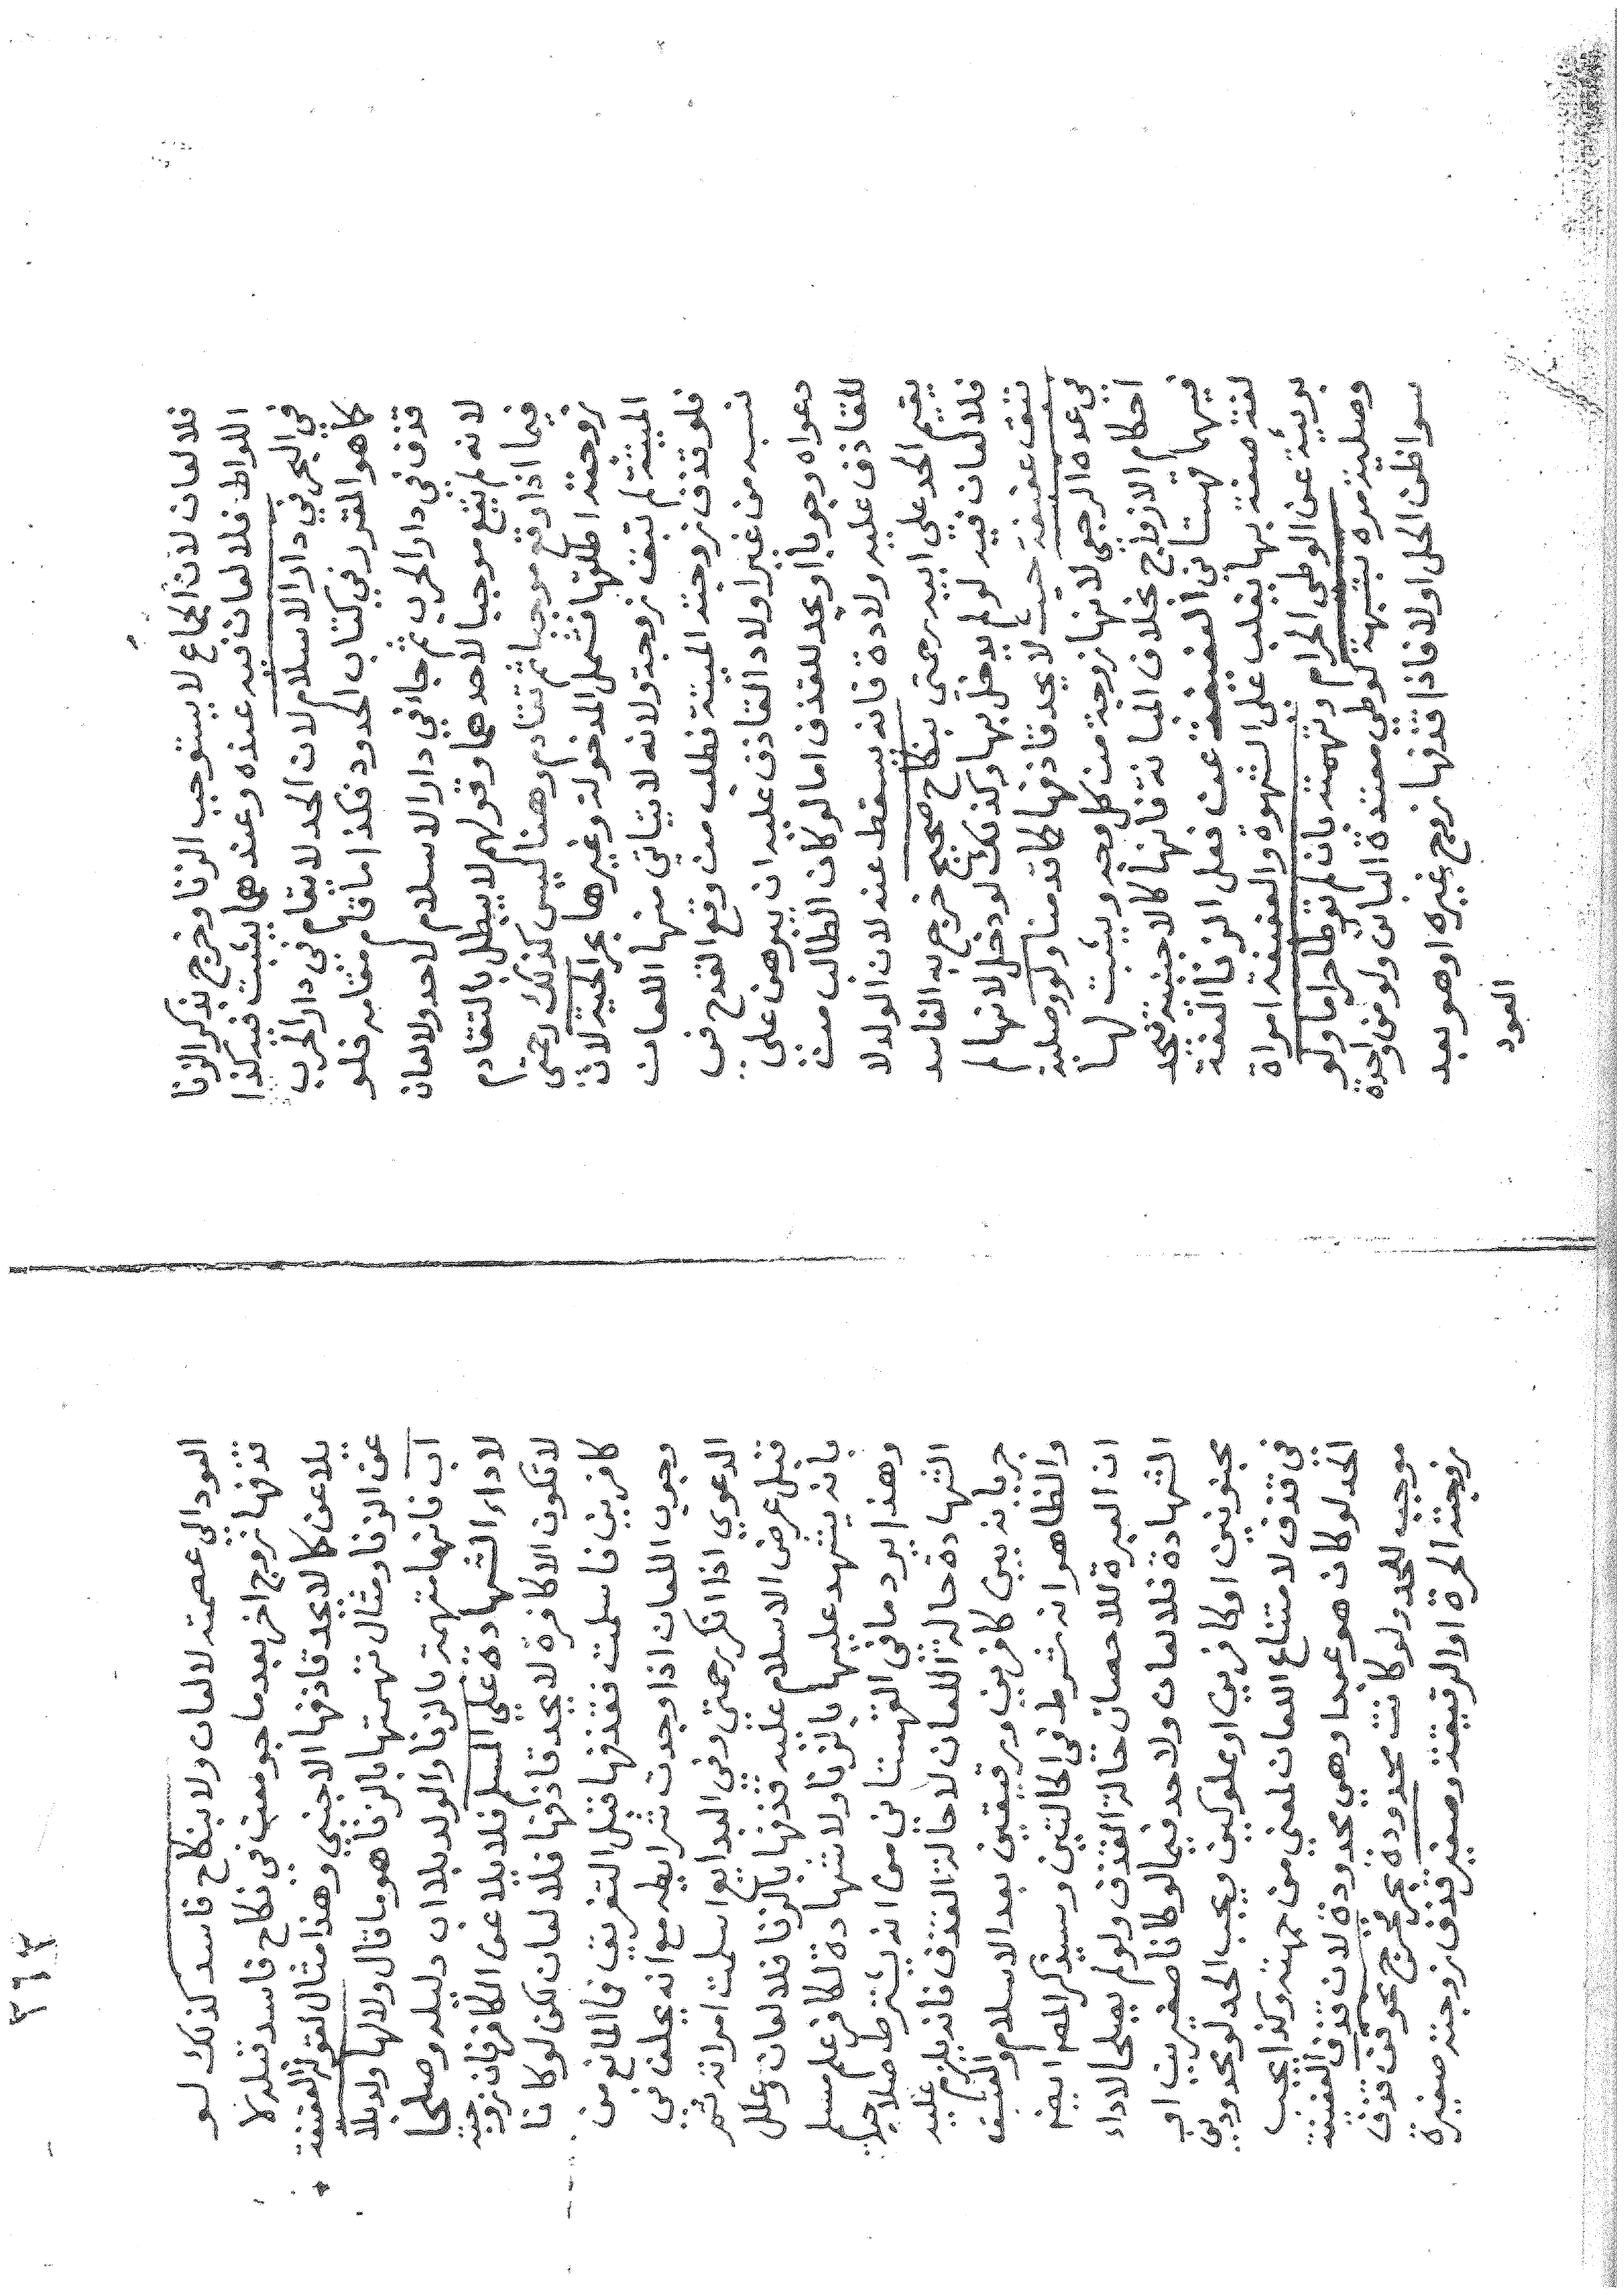 فلا لعان لان الجماع لا يستوجب الزنا وخرج بذكر الزنا
اللواط فلا لعان فيه عنده وعندهما يثبت فيه كذا
في البحر في دار الاسلام لان الحد لا يقام في دار الحرب
كما هو المقرر في كتاب الحدود فكذا ما قام مقامه فلو
قذف في دار الحرب ثم جا في دار الاسلام لا حد ولا لعان
لانه لم يقع موجبا لاحدهما وقولهم لا يبطل بالتقادم
فيما اذا وقع موجبا ثم تقادم وهنا ليس كذلك رحمتي
زوجته اطلقها فشمل المدخولة وغيرها بحر الحية لان
الميتة لم تبق زوجة ولانه لا يتاتي منها اللعان
فلو قذف زوجته الميتة فطلب من وقع القدح في
نسبه من غير اولاد القاذف عليه ان يبرهن على
دعواه وجوبا او يحد للقذف اما لو كان الطالب من
للقاذف عليه ولادة فانه يسقط عنه لان الولد لا
يقيم الحد على ابيه رحمتي بنكاح صحيح خرج به الفاسد
فلا لعان فيه لو لم يدخل بها وكذلك لو دخل لانها لم
تبق عفيفة حيث لا يحد قاذفها كما قدمنا ولو وصلية
في عدة الرجعي لانها زوجة من كل وجه ويثبت لها
احكام الازواج بخلاف المبانة فانها كالاجنبية فيحد
فيهما قهستاني العفيفة عن فعل الزنا العفة
لغة صفة بها يغلب على الشهوة والعفيفة امراة
بريئة عن الوطي الحرام وتهمته بان لم توطا حراما ولو
وصلية مرة بشبهة كوطي معتدة البائن ولو من واحدة
سوا ظن الحل اولا فاذا قذفها زوج غيره او هو بعد
العود
العود الى عصمته لا لعان ولا بنكاح فاسد كذلك لو
قذفها زوج اخر بعدما جومعت في نكاح فاسد قبله لا
يلاعن كما لا يحد قاذفها الاجنبي وهذا مثال لقوله العفيفة
عن الزنا ومثال تهمتها بالزنا هو ما قال ولا لها ولد بلا
اب فانها متهمة بالزنا والولد بلا اب دليله وصلحا
لاداء الشهادة على المسلم فلا يلاعن الكافر فان زوجة
لا تكون الا كافرة لا يحد قاذفها فلا لعان لكن لو كانا
كافرين فاسلمت فقذفها قبل التفريق فما المانع من
وجوب اللعان اذا وجدت شرايطه مع انه يحلف في
الدعوي اذا انكر رحمتي وفي البدايع اسلمت امراته ثم
قبل عرض الاسلام عليه قذفها بالزنا فلا لعان وعلل
بانه يشهد عليها بالزنا ولا شهادة لكافر علي مسلم
وهذا يرد ما في القهستاني من انه يشترط صلاحية
الشهادة حالة اللعان لا حالة القذف فانه يلزم عليه
جريانه بين كافرين ورقيقين بعد الاسلام والعتق
والظاهر انه شرط في الحالتين وسيذكر المصـ ايضـ
ان العبرة للاحصان حالة القذف ولو لم يصلحا لاداء
الشهادة فلا لعان ولا حد فيما لو كانا صغيرين او
مجنونين او كافرين او مملوكين ويجب الحد لو محدودين
في قذف لامتناع اللعان لمعني من جهته وكذا يجب
الحد لو كان هو عبدا وهي محدودة لان قذف العفيفة
موجب للحد ولو كانت محدودة بحر فخرج نحو قن قذف
زوجته الحرة او الرقيقة وصغير قذف زوجته صغيرة